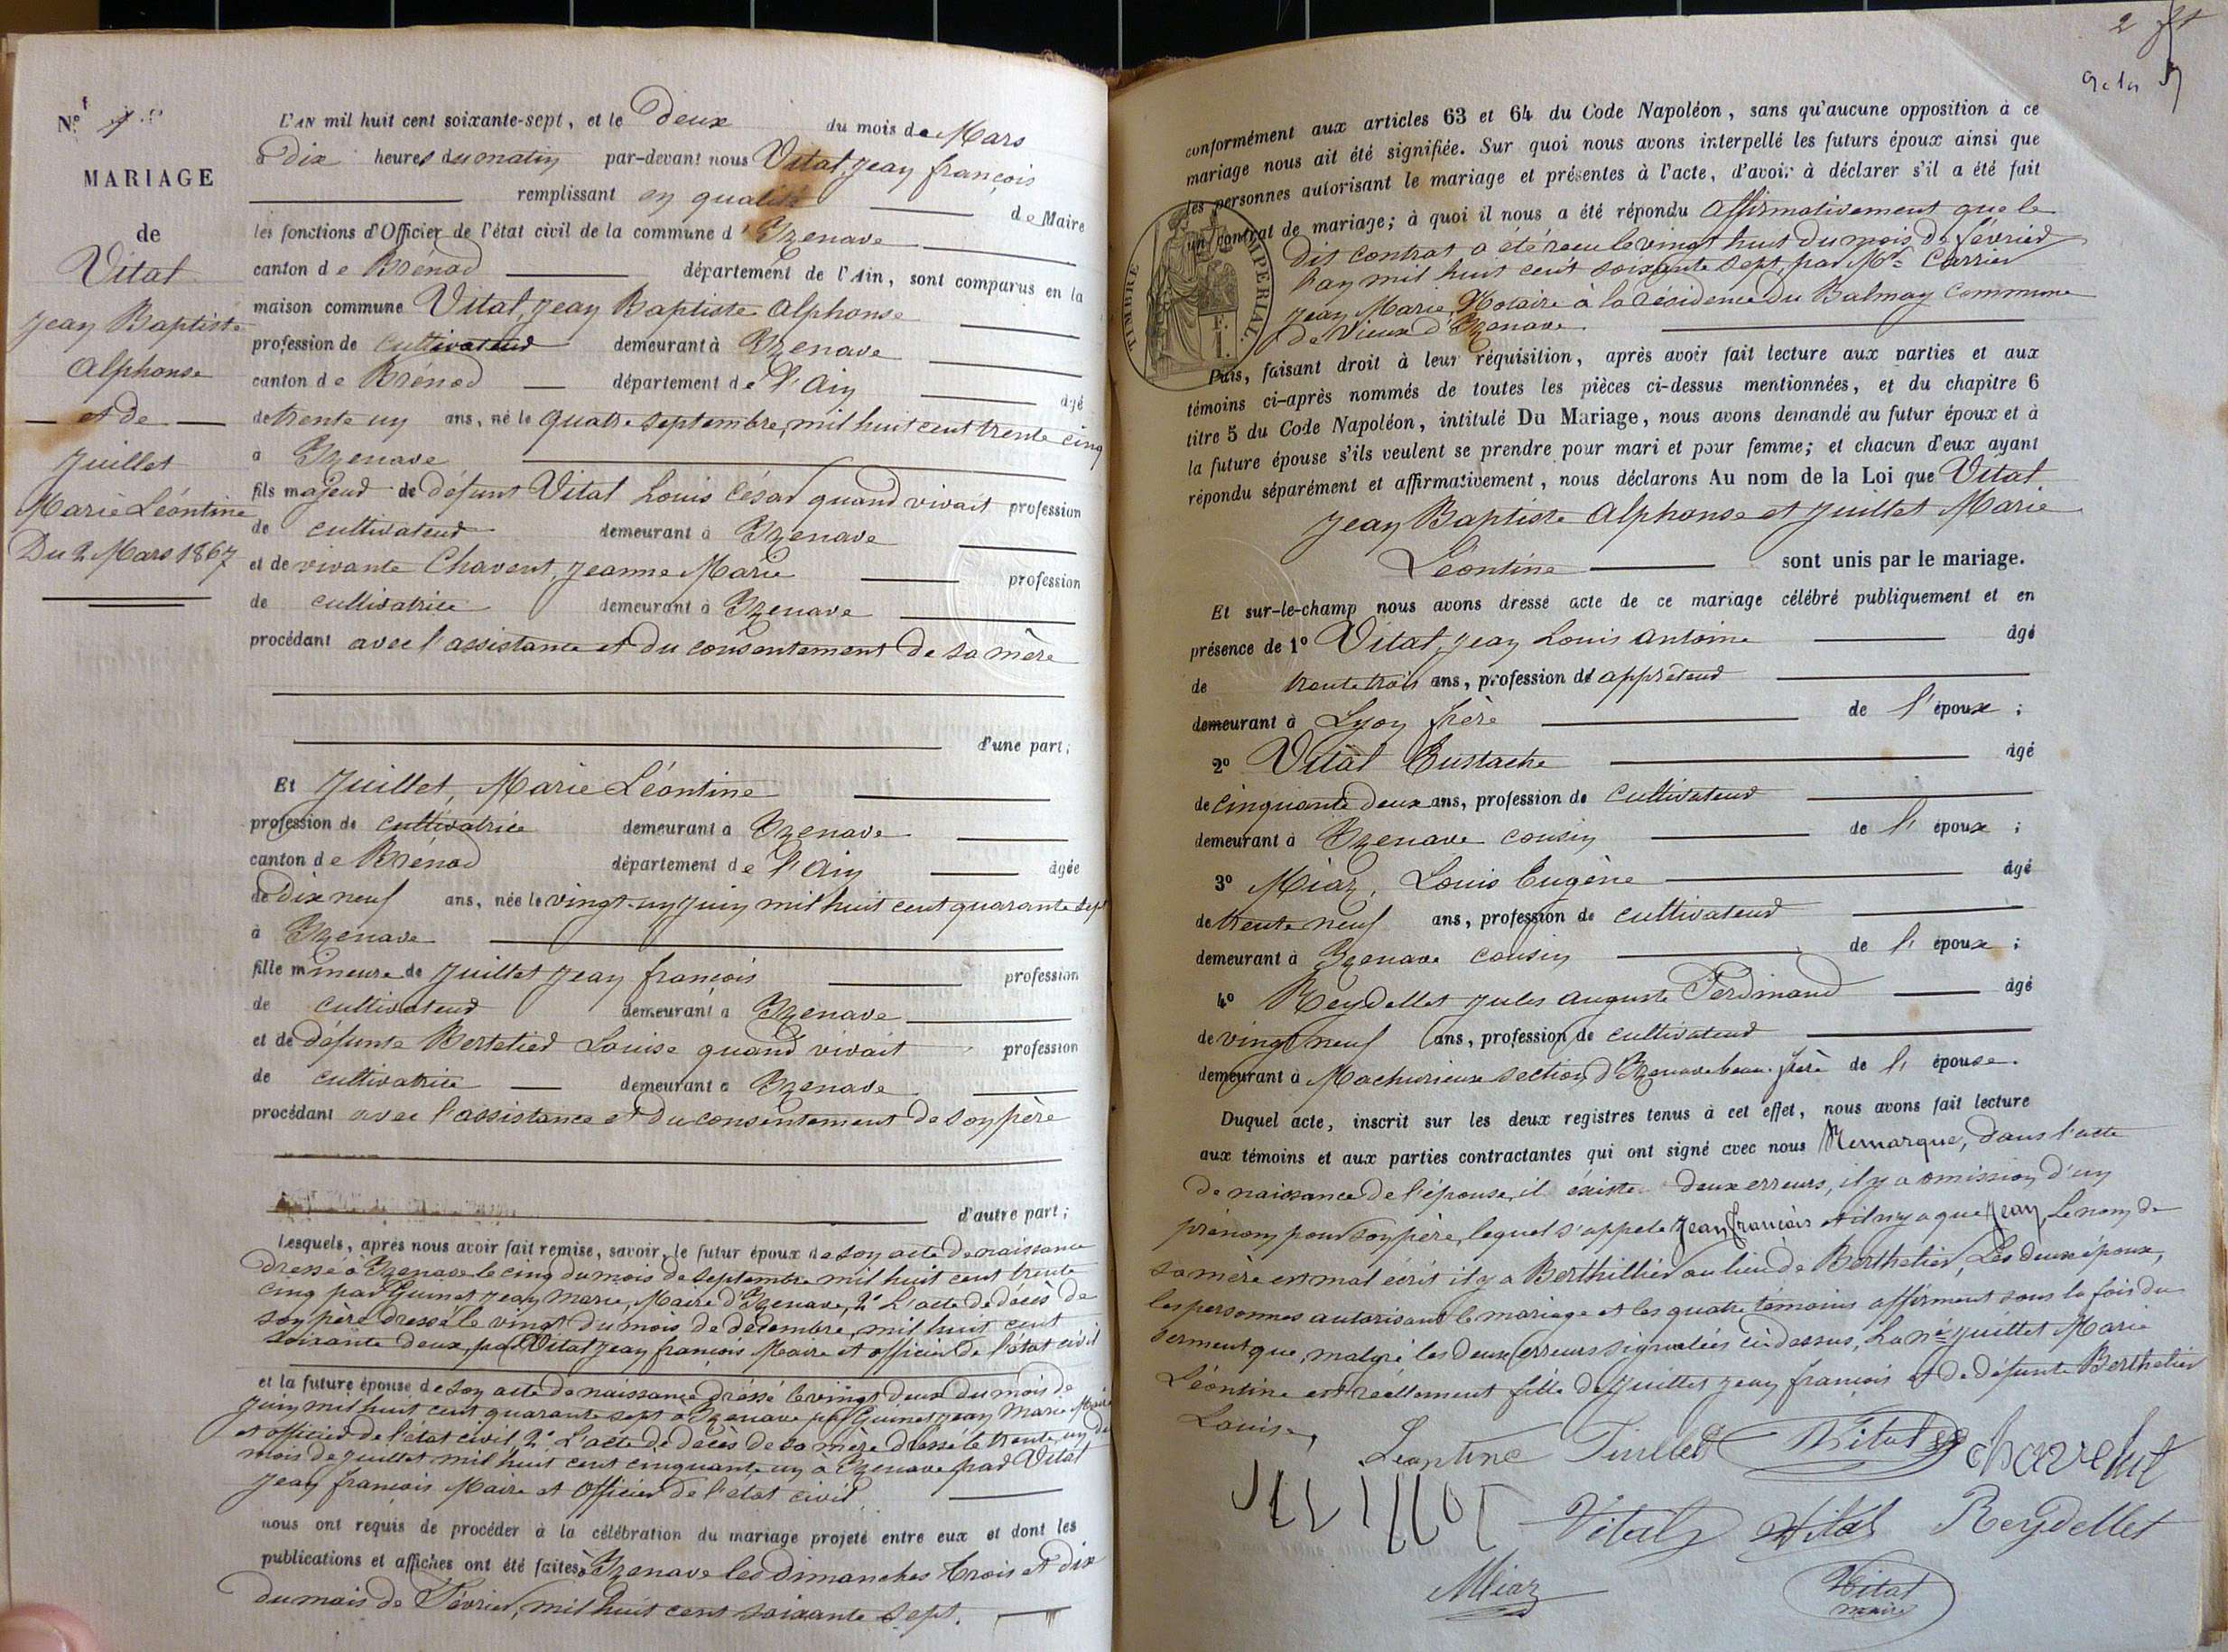 N.º 1
MARIAGE
de
Vital
Jean Baptiste
Alphonse
et de
Juillet
Marie Léontine
Du 2 Mars 1867
L'AN mil huit cent soixante-sept, et le Deux du mois de Mars
à Dix heures du matin par-devant nous Vital, Jean françois
remplissant en qualité de Maire
les fonctions d'Officier de l'état civil de la commune d'Izenave
canton de Brénod département de l'Ain, sont comparus en la
maison commune Vital, Jean Baptiste Alphonse
profession de cultivateur demeurant à Izenave
canton de Brénod département de l'Ain âgé
de trente un ans, né le quatre septembre, mil huit cent trente cinq
à Izenave
fils majeur de défunt Vital Louis César quand vivait profession
de cultivateur demeurant à Izenave
et de vivante Chavent, Jeanne Marie profession
de cultivatrice demeurant à Izenave
procédant avec l'assistance et du consentement de sa mère
d'une part;
Et Juillet, Marie Léontine
profession de cultivatrice demeurant à Izenave
canton de Brénod département de l'Ain âgée
de Dix neuf ans, née le vingt-un juin mil huit cent quarante sept
à Izenave
fille mineure de Juillet Jean françois profession
de cultivateur demeurant à Izenave
et de défunte Bertelier Louise quand vivait profession
de cultivatrice demeurant à Izenave
procédant avec l'assistance et du consentement de son père
d'autre part;
Lesquels, après nous avoir fait remise, savoir, le futur époux de son acte de naissance
dressé à Izenave le cinq du mois de septembre mil huit cent trente
cinq par Guinet Jean Marie, Maire d'Izenave, 2º L'acte de décès de
son père dressé le vingt du mois de décembre, mil huit cent
soixante deux, par Vital Jean françois Maire et officier de l'état civil
et la future épouse de son acte de naissance dressé le vingt deux du mois de
Juin mil huit cent quarante sept à Izenave par Guinet Jean Marie Maire
et officier de l'état civil, 2º L'acte de décès de sa mère dressé le trente un du
mois de Juillet mil huit cent cinquante un à Izenave par Vital
Jean françois Maire et Officier de l'état civil,
nous ont requis de procéder à la célébration du mariage projeté entre eux et dont les
publications et affiches ont été faites à Izenave les dimanches trois et dix
du mois de Février, mil huit cent soixante sept.
2
conformément aux articles 63 et 64 du Code Napoléon, sans qu'aucune opposition à ce
mariage nous ait été signifiée. Sur quoi nous avons interpellé les futurs époux ainsi que
les personnes autorisant le mariage et présentes à l'acte, d'avoir à déclarer s'il a été fait
un contrat de mariage; à quoi il nous a été répondu affirmativement que le
dit contrat a été recu le vingt huit du mois de février
l'an mil huit cent soixante sept, par Mre Carrier
Jean Marie, Notaire à la résidence du Balmay Commune
de Vieux d'Izenave.
TIMBRE IMPERIAL
Puis, faisant droit à leur réquisition, après avoir fait lecture aux parties et aux
témoins ci-après nommés de toutes les pièces ci-dessus mentionnées, et du chapitre 6
titre 5 du Code Napoléon, intitulé Du Mariage, nous avons demandé au futur époux et à
la future épouse s'ils veulent se prendre pour mari et pour femme; et chacun d'eux ayant
répondu séparément et affirmativement, nous déclarons Au nom de la Loi que Vital
Jean Baptiste Alphonse et Juillet Marie
Léontine sont unis par le mariage.
Et sur-le-champ nous avons dressé acte de ce mariage célébré publiquement et en
présence de 1º Vital, Jean Louis Antoine âgé
de trente trois ans, profession d'apprêteur
demeurant à Lyon frère de l'époux;
2º Vital Eustache âgé
de cinquante deux ans, profession de cultivateur
demeurant à Izenave cousin de l'époux;
3º Miaz, Louis Eugène âgé
de trente neuf ans, profession de cultivateur
demeurant à Izenave cousin de l'époux;
4º Reydellet Jules Auguste Ferdinand âgé
de vingt neuf ans, profession de cultivateur
demeurant à Machurieux section d'Izenave beau-frère de l'épouse.
Duquel acte, inscrit sur les deux registres tenus à cet effet, nous avons fait lecture
aux témoins et aux parties contractantes qui ont signé avec nous Remarque, dans l'acte
de naissance de l'épouse, il éxiste deux erreurs, il y a omission d'un
prénom pour son père, lequel s'appele Jean françois et il n'y a que Jean, Le nom de
sa mère est mal écrit il y a Berthillier au lieu de Berthelier, Les deux époux,
les personnes autorisant le mariage et les quatre témoins affirment sous la foi du
serment que, malgré les deux erreurs signalées ci-dessus, La née Juillet Marie
Léontine est réellement fille de Juillet Jean françois et de défunte Berthelier
Louise,
Leontine Juillet Vital chavent
Juillet Vital Vital Reydellet
Miaz Vital
maire